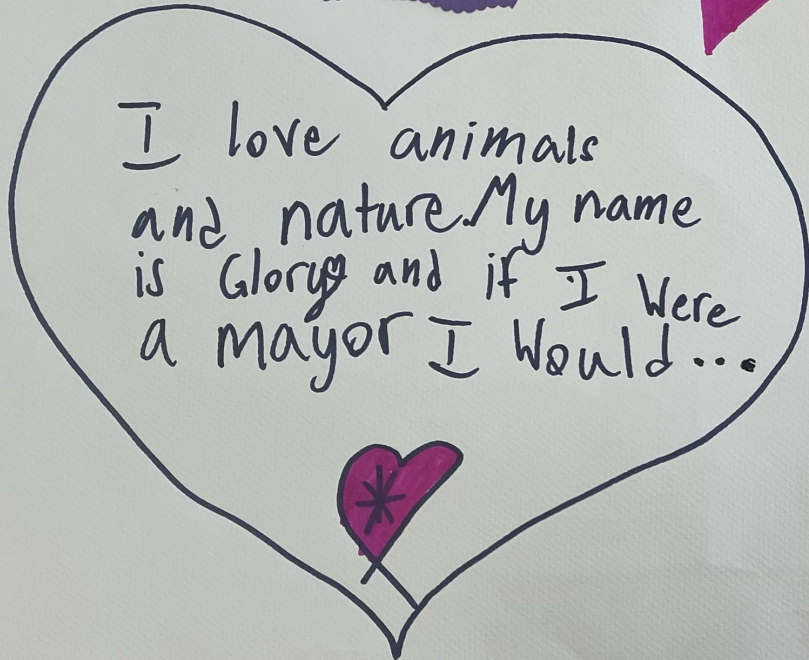 I love animals
and nature. My name
is Glory and if I Were
a mayor I Would...